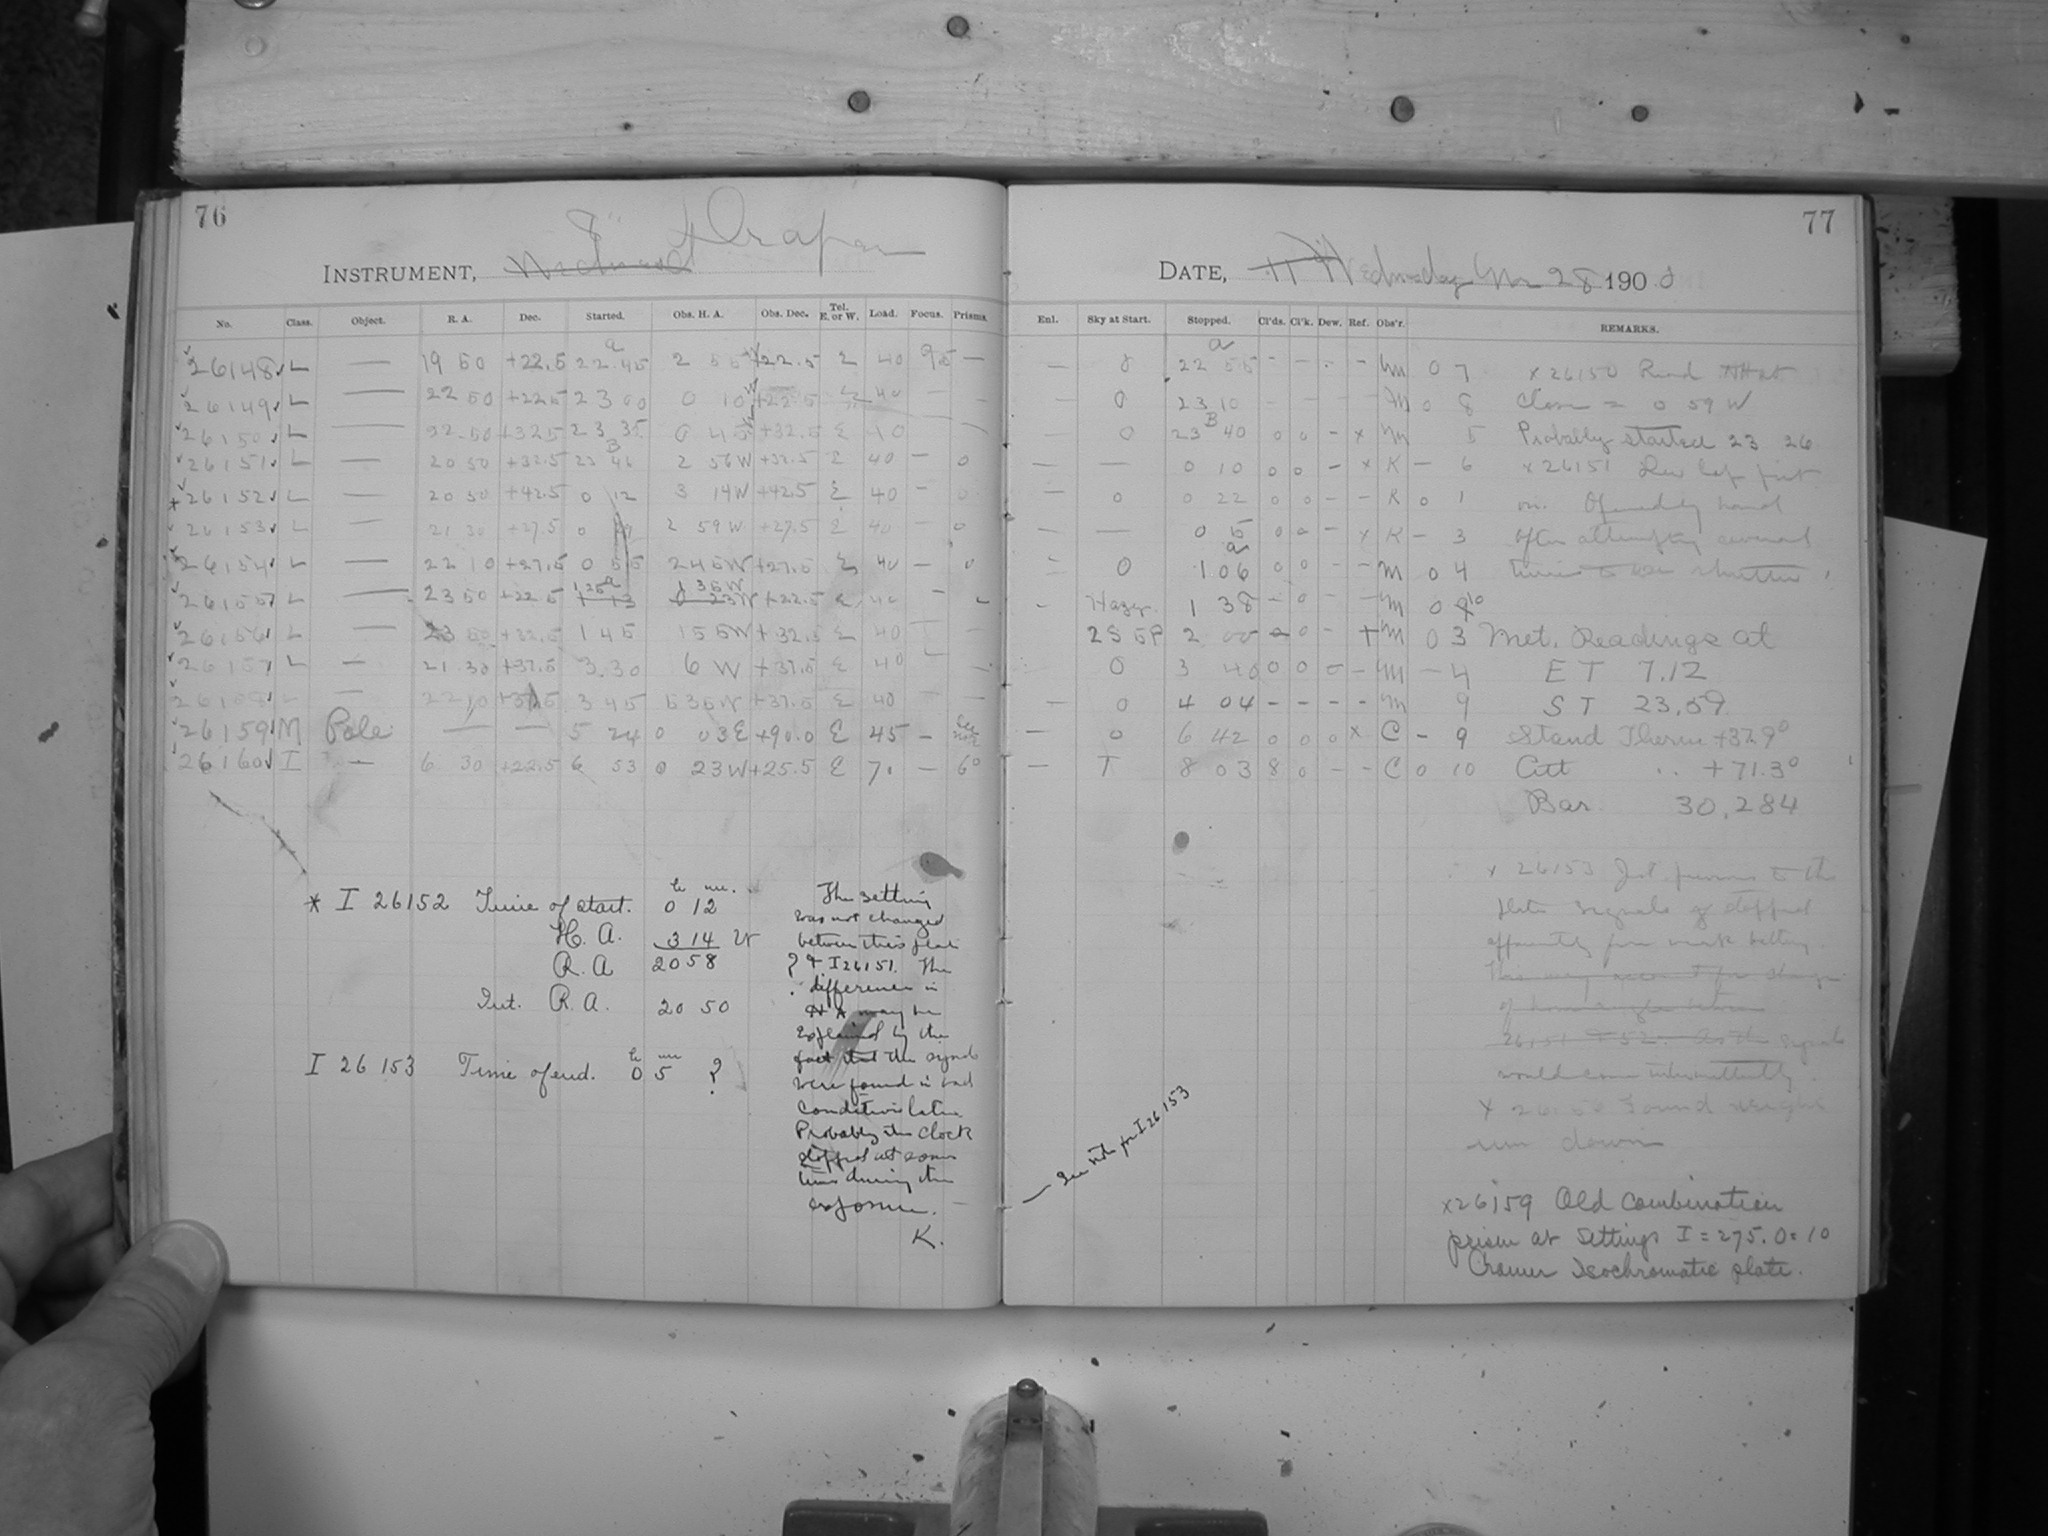 76
8" Draper
INSTRUMENT,
No. Class. Object. R. A. Dec. Started. Obs. H. A. Obs. Dec. Tel. E. or W. Load. Focus. Prisms.
26148 L — 19 50 +22.5 22 45 2 55 +22.5 E 40 95 —
26149 L — 22 50 +22.5 23 00 0 10 +22.5 E 40 — —
26150 L — 22 50 +32.5 23 35 0 45 +32.5 E 40 —
26151 L — 20 50 +32.5 23 46 2 56W +32.5 E 40 — 0
+26152 L — 20 50 +42.5 0 12 3 14W +42.5 E 40 — 0
26153 L — 21 30 +27.5 0 2 59W +27.5 E 40 — 0
26154 L — 22 10 +27.5 0 55 2 45W +27.5 E 40 — 0
26155 L — 23 50 +22.5 1 25 1 35W +22.5 E 40 — —
26156 L — 23 50 +32.5 1 45 1 55W +32.5 E 40 —
26157 L — 21 30 +37.5 3.30 6 W +37.5 E 40 —
26158 L — 22 10 +37.5 3 45 5 35W +37.5 E 40 — —
26159 M Pole — — 5 24 0 03E +90.0 E 45 — See note
26160 I — 6 30 +22.5 6 53 0 23W +25.5 E 70 — 6°
* I 26152 Time of start. 0 12
h m.
H. A. 3 14 W
R. A 20 58 ?
Int. R. A. 20 50
I 26153 Time of end. 0 5 ?
h m
The setting
was not changed
between this plate
& I 26151. The
difference in
H A may be
explained by the
fact that the signals
were found in bad
condition later.
Probably the clock
stopped at some
time during the
exposure.
K.
77
DATE, Wednesday Nov 28 1900
Enl. Sky at Start. Stopped. Cl'ds. Cl'k. Dew. Ref. Obs'r. REMARKS.
— 0 22 55 - - - - M 0 7 x 26150 Read HA at
— 0 23 10 - - - - M 0 8 Close = 0 59 W
— 0 23 40 0 0 - x M 5 Probably started 23 26
— — 0 10 0 0 - x K - 6 x 26151 Dew cap first
— 0 0 22 0 0 - - K 0 1 on. Opened by hand
— — 0 5 0 0 - x K - 3 after attempting several
0 1 06 0 0 - - M 0 4 times to use shutter.
- Hazy 1 38 - 0 - - M 0 10
2 S 5 P 2 00 - 0 - + M 0 3 Met. Readings at
0 3 40 0 0 0 - M - 4 E T 7.12
— 0 4 04 - - - - M 9 S T 23.59
— 0 6 42 0 0 0 x C - 9 Stand Therm +32.9°
— T 8 03 8 0 - - C 0 10 Att " +71.3°
Bar. 30.284
x 26153 Just previous to this
plate signals stopped
apparently from weak battery.
This may account for change
of hour angle between
26151 + 52. As the signals
would come intermittently.
x 26160 Found weight
run down
— See note for I 26153
x26159 Old combination
prism at settings I = 275. O = 10
Cramer Isochromatic plate.